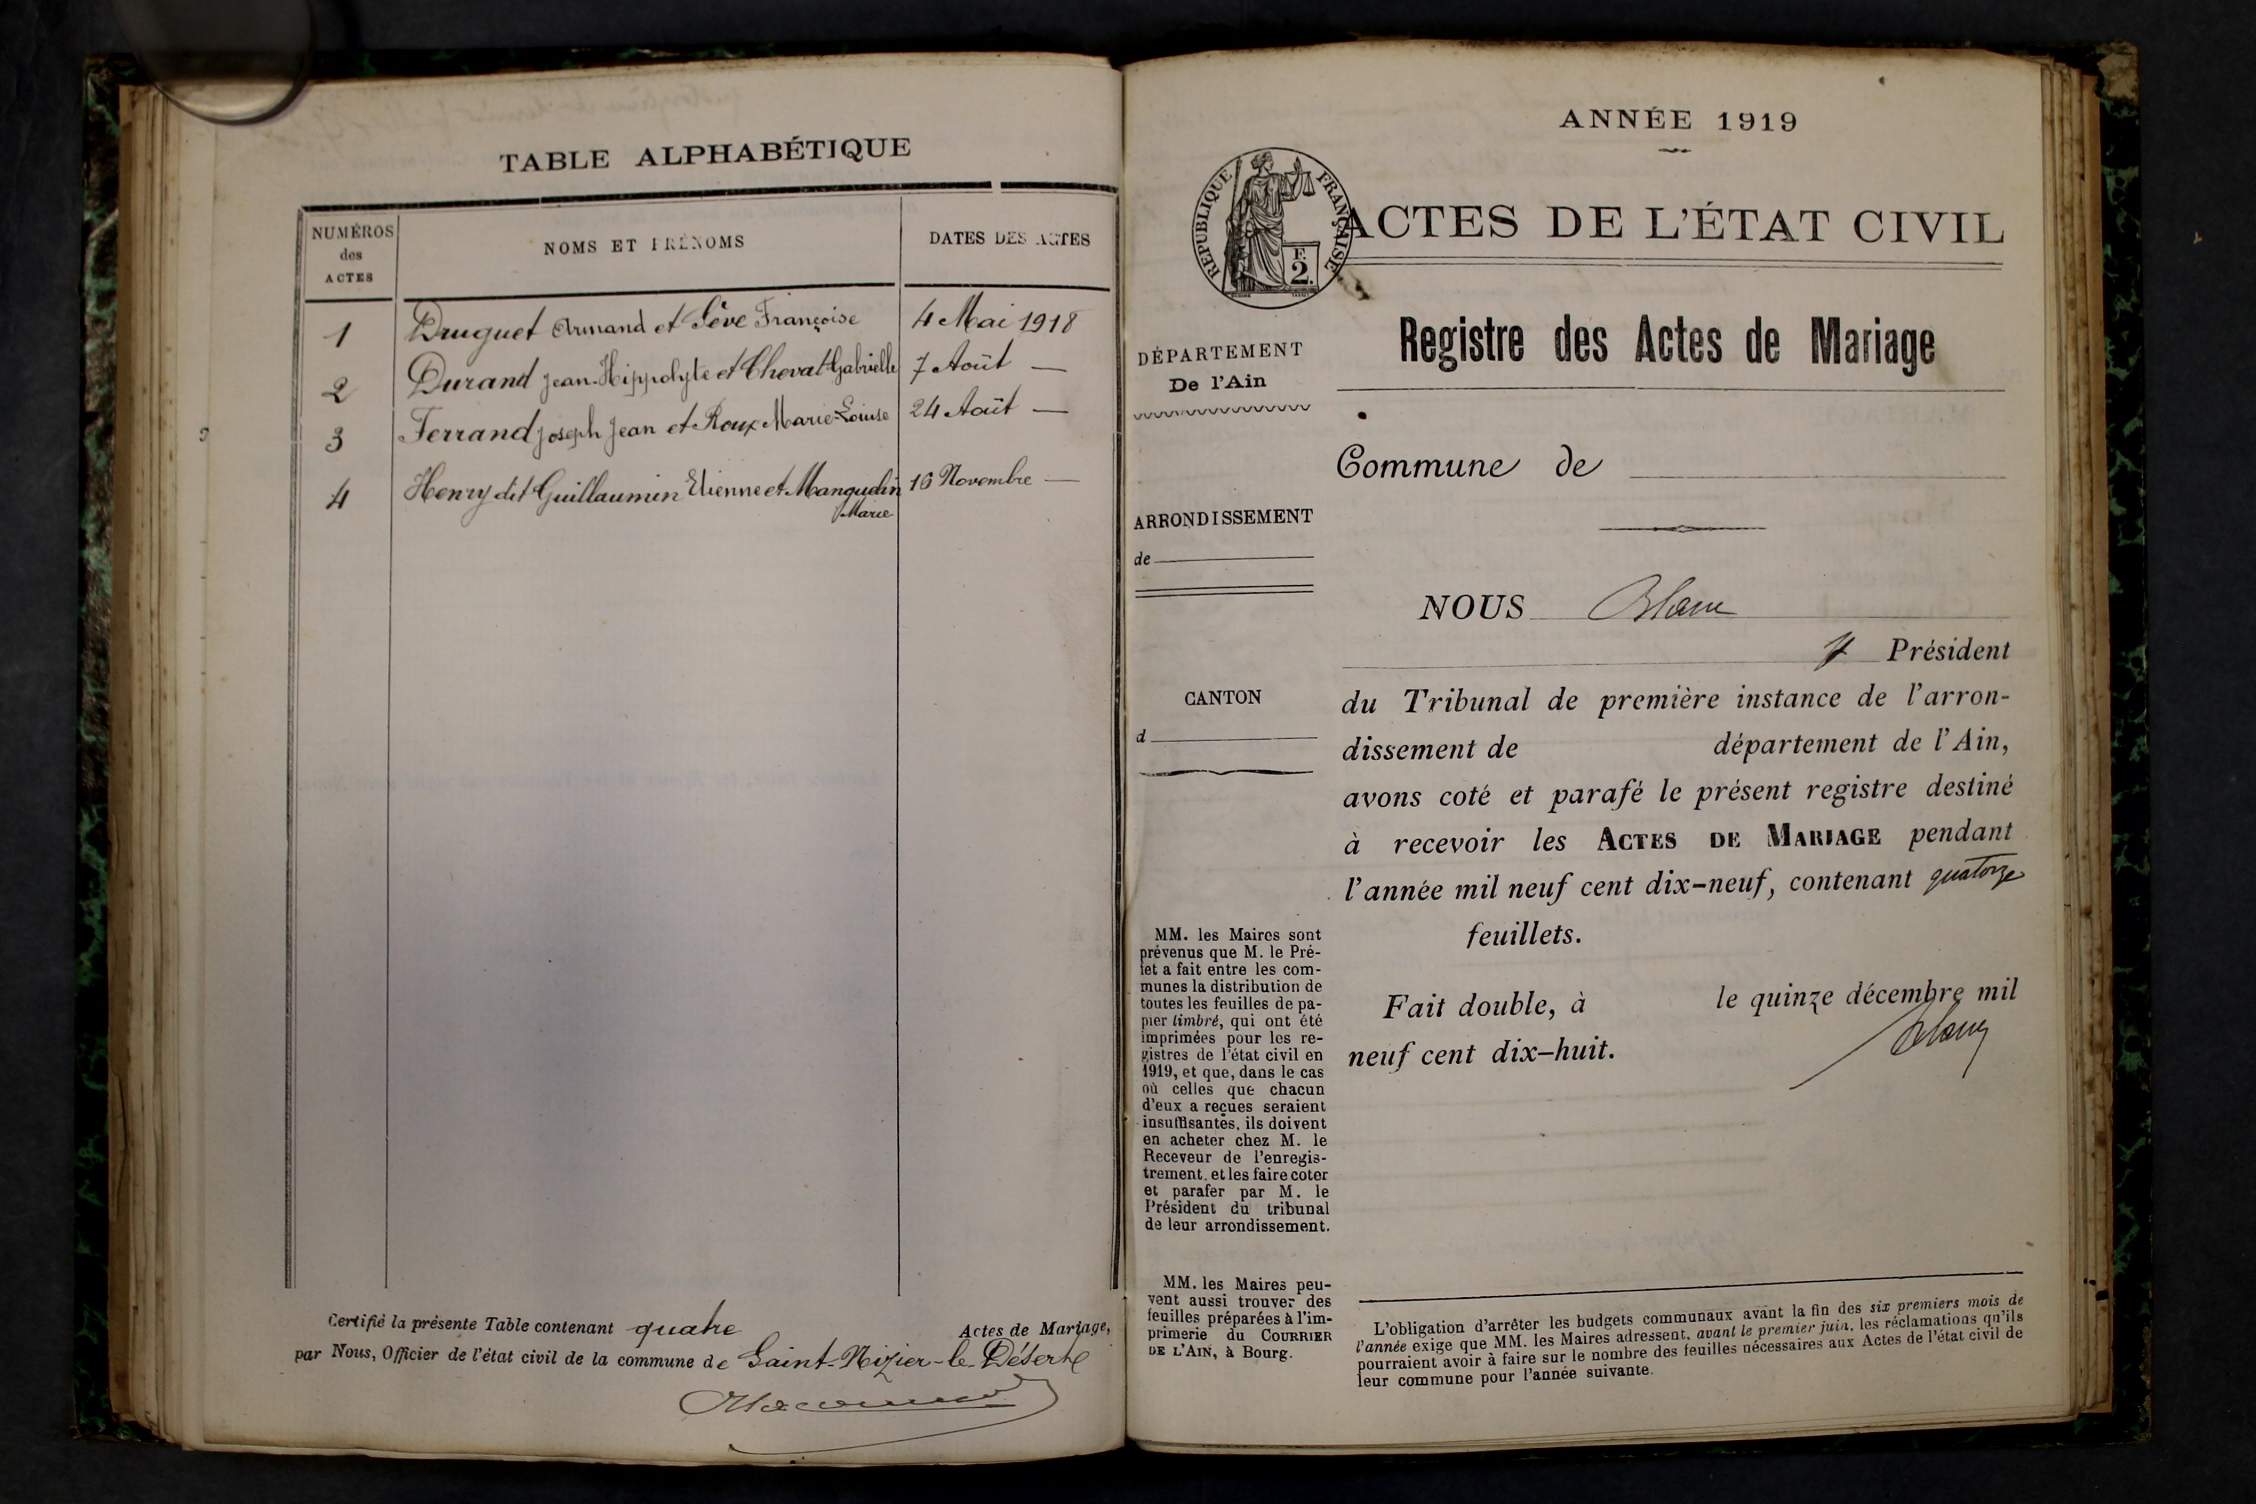 TABLE ALPHABÉTIQUE
NUMÉROS
des
ACTES
NOMS ET PRÉNOMS
DATES DES ACTES
1 Druguet Armand et Sève Françoise 4 Mai 1918
2 Durand Jean-Hippolyte et Chevat Gabrielle 7 Août —
3 Ferrand Joseph Jean et Roux Marie-Louise 24 Août —
4 Henry dit Guillaumin Etienne et Mangudin 16 Novembre —
Marie
Certifié la présente Table contenant quatre Actes de Mariage,
par Nous, Officier de l'état civil de la commune de Saint-Nizier-le-Désert
ANNÉE 1919
RÉPUBLIQUE FRANÇAISE
F.
2.
ACTES DE L'ÉTAT CIVIL
Registre des Actes de Mariage
DÉPARTEMENT
De l'Ain
Commune de
ARRONDISSEMENT
de
CANTON
d
NOUS Blanc
Président
du Tribunal de première instance de l'arron-
dissement de département de l'Ain,
avons coté et parafé le présent registre destiné
à recevoir les ACTES DE MARIAGE pendant
l'année mil neuf cent dix-neuf, contenant quatorze
feuillets.
Fait double, à le quinze décembre mil
neuf cent dix-huit.
Blanc
MM. les Maires sont
prévenus que M. le Pré-
fet a fait entre les com-
munes la distribution de
toutes les feuilles de pa-
pier timbré, qui ont été
imprimées pour les re-
gistres de l'état civil en
1919, et que, dans le cas
où celles que chacun
d'eux a reçues seraient
insuffisantes, ils doivent
en acheter chez M. le
Receveur de l'enregis-
trement, et les faire coter
et parafer par M. le
Président du tribunal
de leur arrondissement.
MM. les Maires peu-
vent aussi trouver des
feuilles préparées à l'im-
primerie du COURRIER
DE L'AIN, à Bourg.
L'obligation d'arrêter les budgets communaux avant la fin des six premiers mois de
l'année exige que MM. les Maires adressent, avant le premier juin, les réclamations qu'ils
pourraient avoir à faire sur le nombre des feuilles nécessaires aux Actes de l'état civil de
leur commune pour l'année suivante.